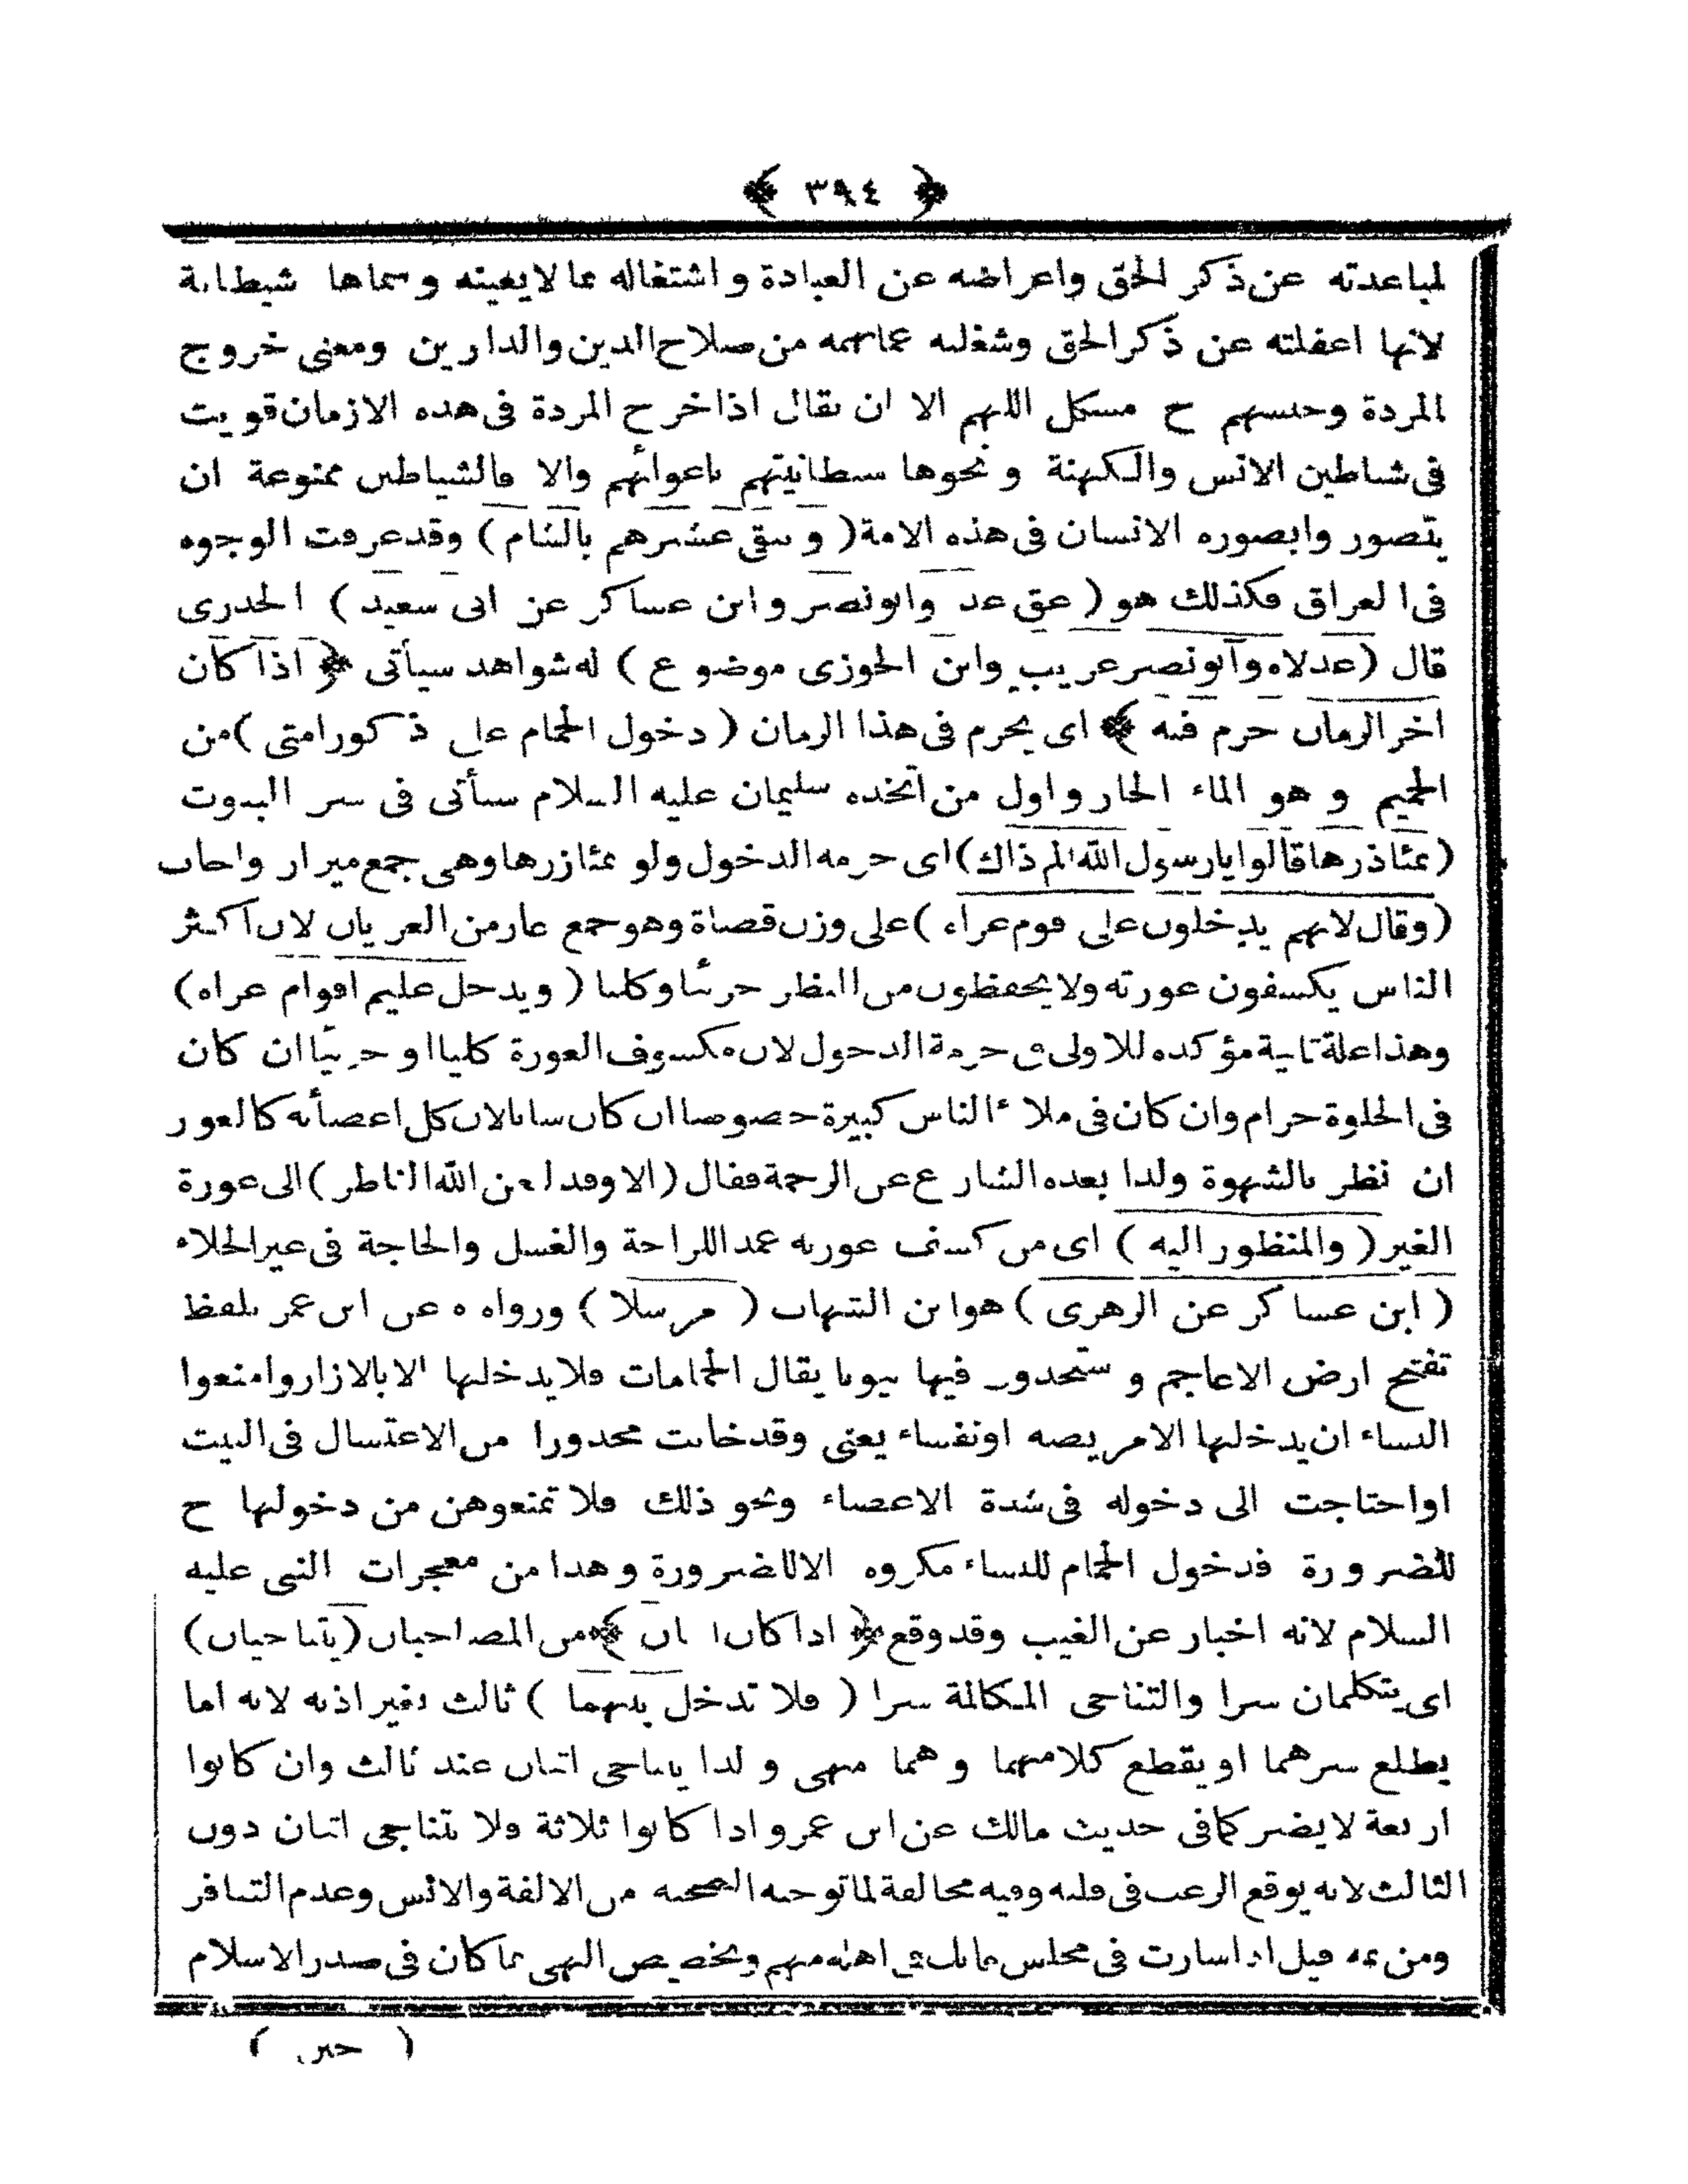 ﴿ ٣٩٤ ﴾
لمباعدته عن ذكر الحق واعراضه عن العبادة واشتغاله بما لايعينه وسماها شيطانة
لانها اغفلته عن ذكر الحق وشغلته عما يهمه من صلاح الدين والدارين ومعنى خروج
المردة وحبسهم ح مشكل اللهم الا ان يقال اذا خرج المردة فى هذه الازمان قويت
فى شاطين الانس والكهنة ونحوها شيطانيتهم باعوائهم والا فالشياطين ممنوعة ان
يتصور وابصوره الانسان فى هذه الامة (و يبقى عشرهم بالشام) وقد عرفت الوجوه
فى العراق فكذلك هو (عق عد وابونصر وابن عساكر عن ابى سعيد) الخدرى
قال (عد لاه وابونصر غريب وابن الجوزى موضوع) له شواهد سيأتى ﴿ اذا كان
اخر الزمان حرم فيه ﴾ اى يحرم فى هذا الزمان (دخول الحمام على ذكور امتى) من
الحميم وهو الماء الحار واول من اتخذه سليمان عليه السلام سيأتى فى شر البيوت
(بمئاذرها قالوا يا رسول الله لم ذاك) اى حرمه الدخول ولو بمئازرها وهى جمع ميزار واجاب
(وقال لانهم يدخلون على قوم عراء) على وزن قضاة وهو جمع عار من العريان لان اكثر
الناس يكشفون عورته ولا يحفظون من النظر جزئيا وكليا (ويدخل عليهم اقوام عراه)
وهذا علة ثانية مؤكده للاولى فى حرمة الدخول لان مكشوف العورة كليا او جزئيا ان كان
فى الخلوة حرام وان كان فى ملاء الناس كبيرة خصوصا ان كان شابا لان كل اعضائه كالعور
ان نظر بالشهوة ولذا بعده الشارع عن الرحمة فقال (الا وقد لعن الله الناظر) الى عورة
الغير (والمنظور اليه) اى من كشف عورته عمد اللراحة والغسل والحاجة فى غير الخلاء
(ابن عساكر عن الزهرى) هو ابن الشهاب (مرسلا) ورواه ه عن ابن عمر بلفظ
تفتح ارض الاعاجم و ستجدون فيها بيوتا يقال الحمامات فلا يدخلها الا بالازار وامنعوا
النساء ان يدخلها الا مريضه او نفساء يعنى وقد خافت محذورا من الاغتسال فى البيت
او احتاجت الى دخوله فى شدة الاعضاء ونحو ذلك فلا تمنعوهن من دخولها ح
للضرورة فدخول الحمام للنساء مكروه الا للضرورة وهذا من معجزات النبى عليه
السلام لانه اخبار عن الغيب وقد وقع ﴿ اذا كان اثنان ﴾ من المصاحبان (يتناجيان)
اى يتكلمان سرا والتناجى المكالمة سرا (فلا تدخل بينهما) ثالث بغير اذنه لانه اما
يطلع سرهما او يقطع كلامهما وهما منهى و لذا يتناجى اثنان عند ثالث وان كانوا
اربعة لا يضر كما فى حديث مالك عن ابن عمرو اذا كانوا ثلاثة فلا يتناجى اثنان دون
الثالث لانه يوقع الرعب فى قلبه وفيه مخالفة لما توجبه الصحبه من الالفة والانس وعدم التنافر
ومن ثمه قيل اذا سارت فى مجلس فانك فى اهله متهم وتخصيص النهى بما كان فى صدر الاسلام
( حين )